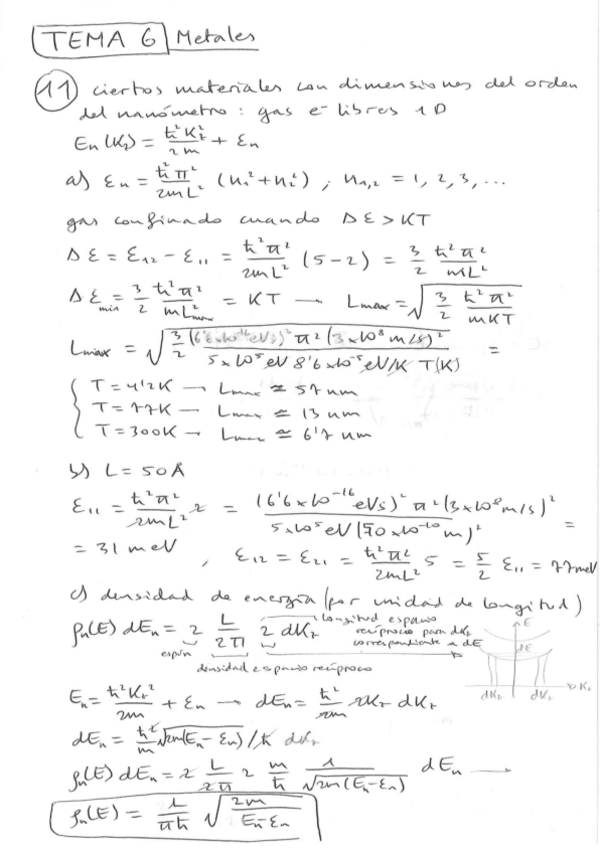 TEMA 6 Metales
11 ciertos materiales con dimensiones del orden
del nanómetro: gas e⁻ libres 1D
En(Kz) = ħ²Kz²/2m + εn
a) εn = ħ²π²/2mL² (n₁²+n₂²) ; n₁,₂ = 1, 2, 3, ...
gas confinado cuando Δε > KT
Δε = ε₁₂ - ε₁₁ = ħ²π²/2mL² (5-2) = 3/2 ħ²π²/mL²
Δε min = 3/2 ħ²π²/mL²max = KT → Lmax = √(3/2 ħ²π²/mKT)
Lmax = √(3/2 (6'6x10⁻¹⁶eVs)² π² (3x10⁸ m/s)² / 5x10⁵eV 8'6x10⁻⁵eV/K T(K)) =
T = 4'2K → Lmax ≃ 57 nm
T = 77K → Lmax ≃ 13 nm
T = 300K → Lmax ≃ 6'7 nm
b) L = 50Å
ε₁₁ = ħ²π²/2mL² 2 = (6'6x10⁻¹⁶eVs)² π² (3x10⁸m/s)² / 5x10⁵eV (50x10⁻¹⁰m)² =
= 31 meV , ε₁₂ = ε₂₁ = ħ²π²/2mL² 5 = 5/2 ε₁₁ = 77meV
c) densidad de energía (por unidad de longitud)
ρn(E) dEn = 2 L/2π 2 dKz
longitud espacio
recíproco para dKz
correspondiente a dE
espín
densidad espacio recíproco
E
dE
dKz dKz Kz
En = ħ²Kz²/2m + εn → dEn = ħ²/2m 2Kz dKz
dEn = ħ²/m √2m(En-εn)/ħ dKz
ρn(E) dEn = 2 L/2π 2 m/ħ 1/√2m(En-εn) dEn →
ρn(E) = 1/πħ √(2m/En-εn)